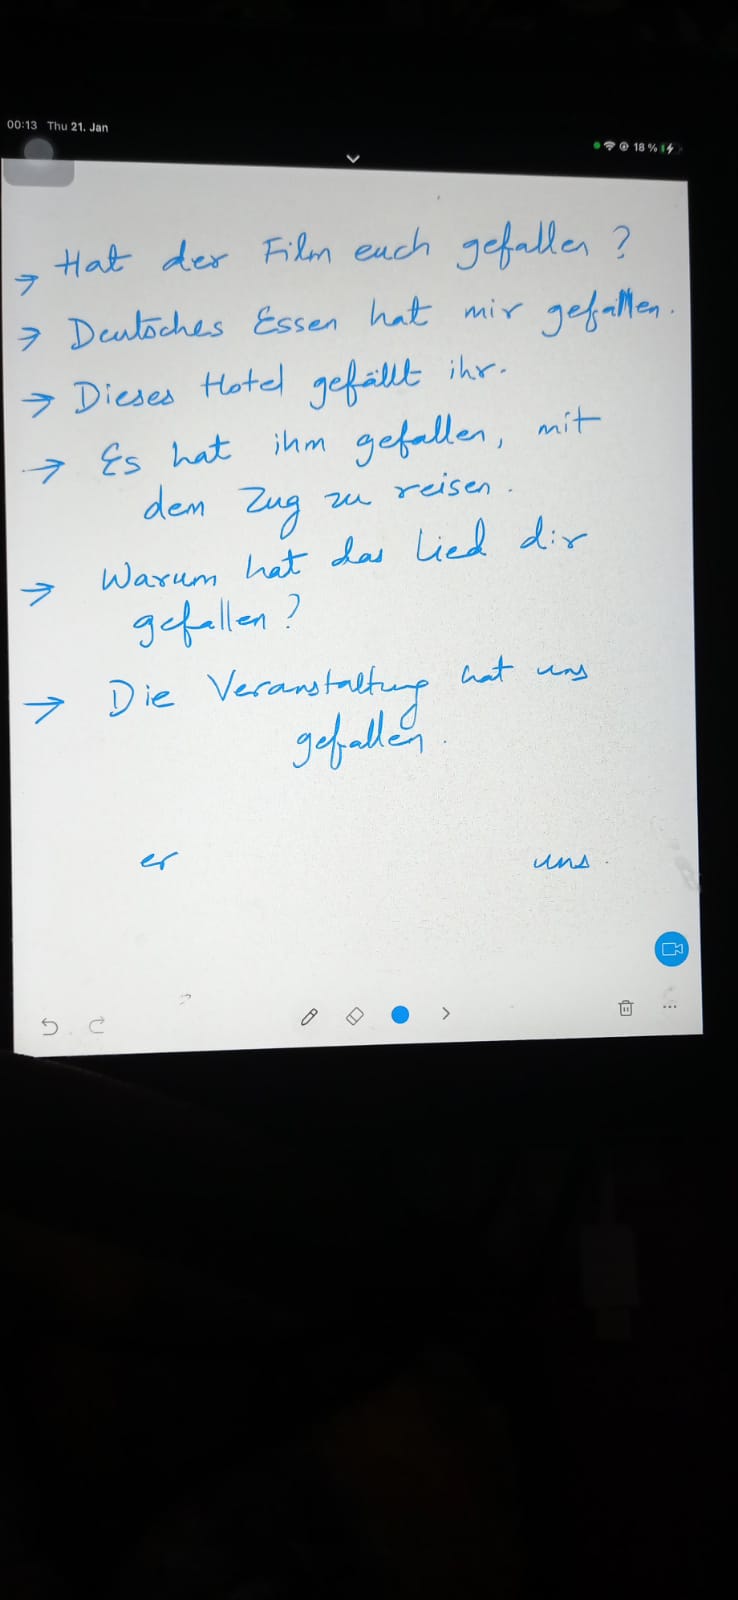 00:13 Thu 21. Jan
18 %
→ Hat der Film euch gefallen ?
→ Deutsches Essen hat mir gefallen.
→ Dieses Hotel gefällt ihr.
→ Es hat ihm gefallen, mit
dem Zug zu reisen.
→ Warum hat das Lied dir
gefallen ?
→ Die Veranstaltung hat uns
gefallen.
er uns.